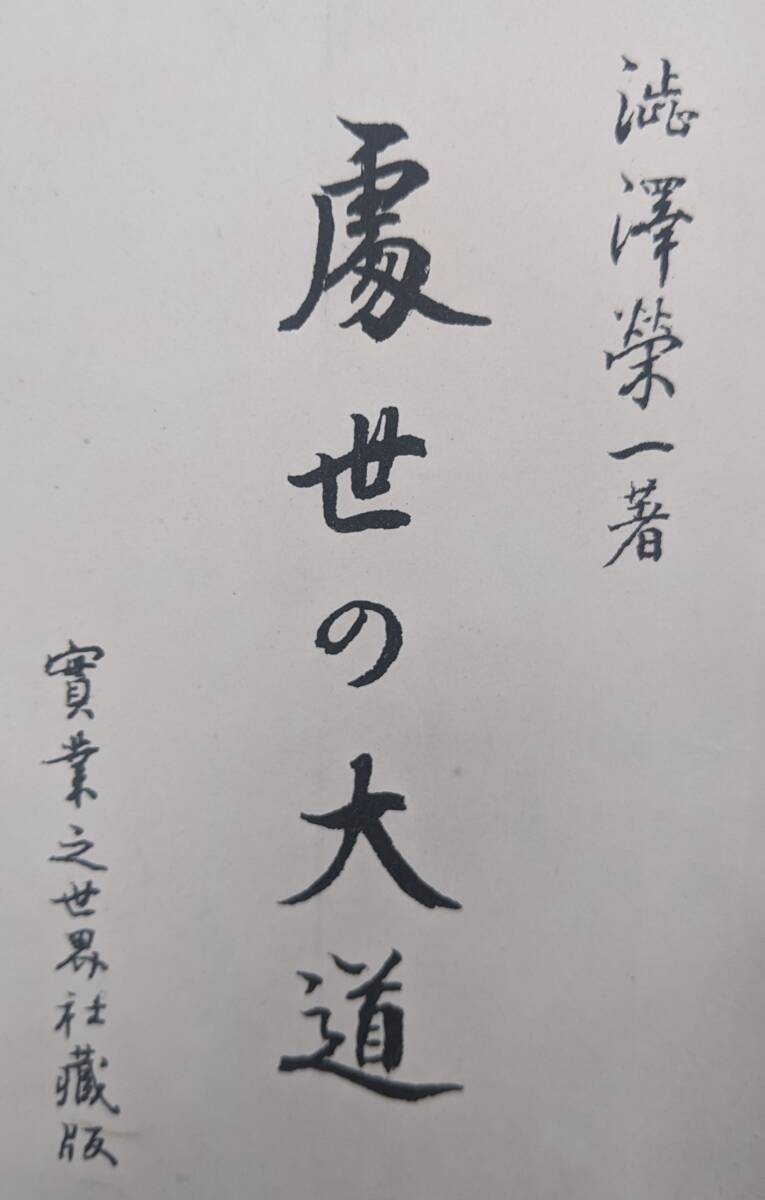 澁澤榮一著
處世の大道
實業之世界社藏版